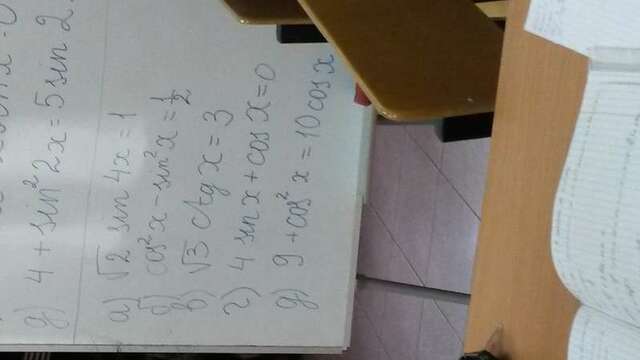 д) 4 + sin² 2x = 5 sin 2
а) √2 sin 4x = 1
б) cos² x - sin² x = 1/2
в) √3 ctg x = 3
г) 4 sin x + cos x = 0
д) 9 + cos² x = 10 cos x